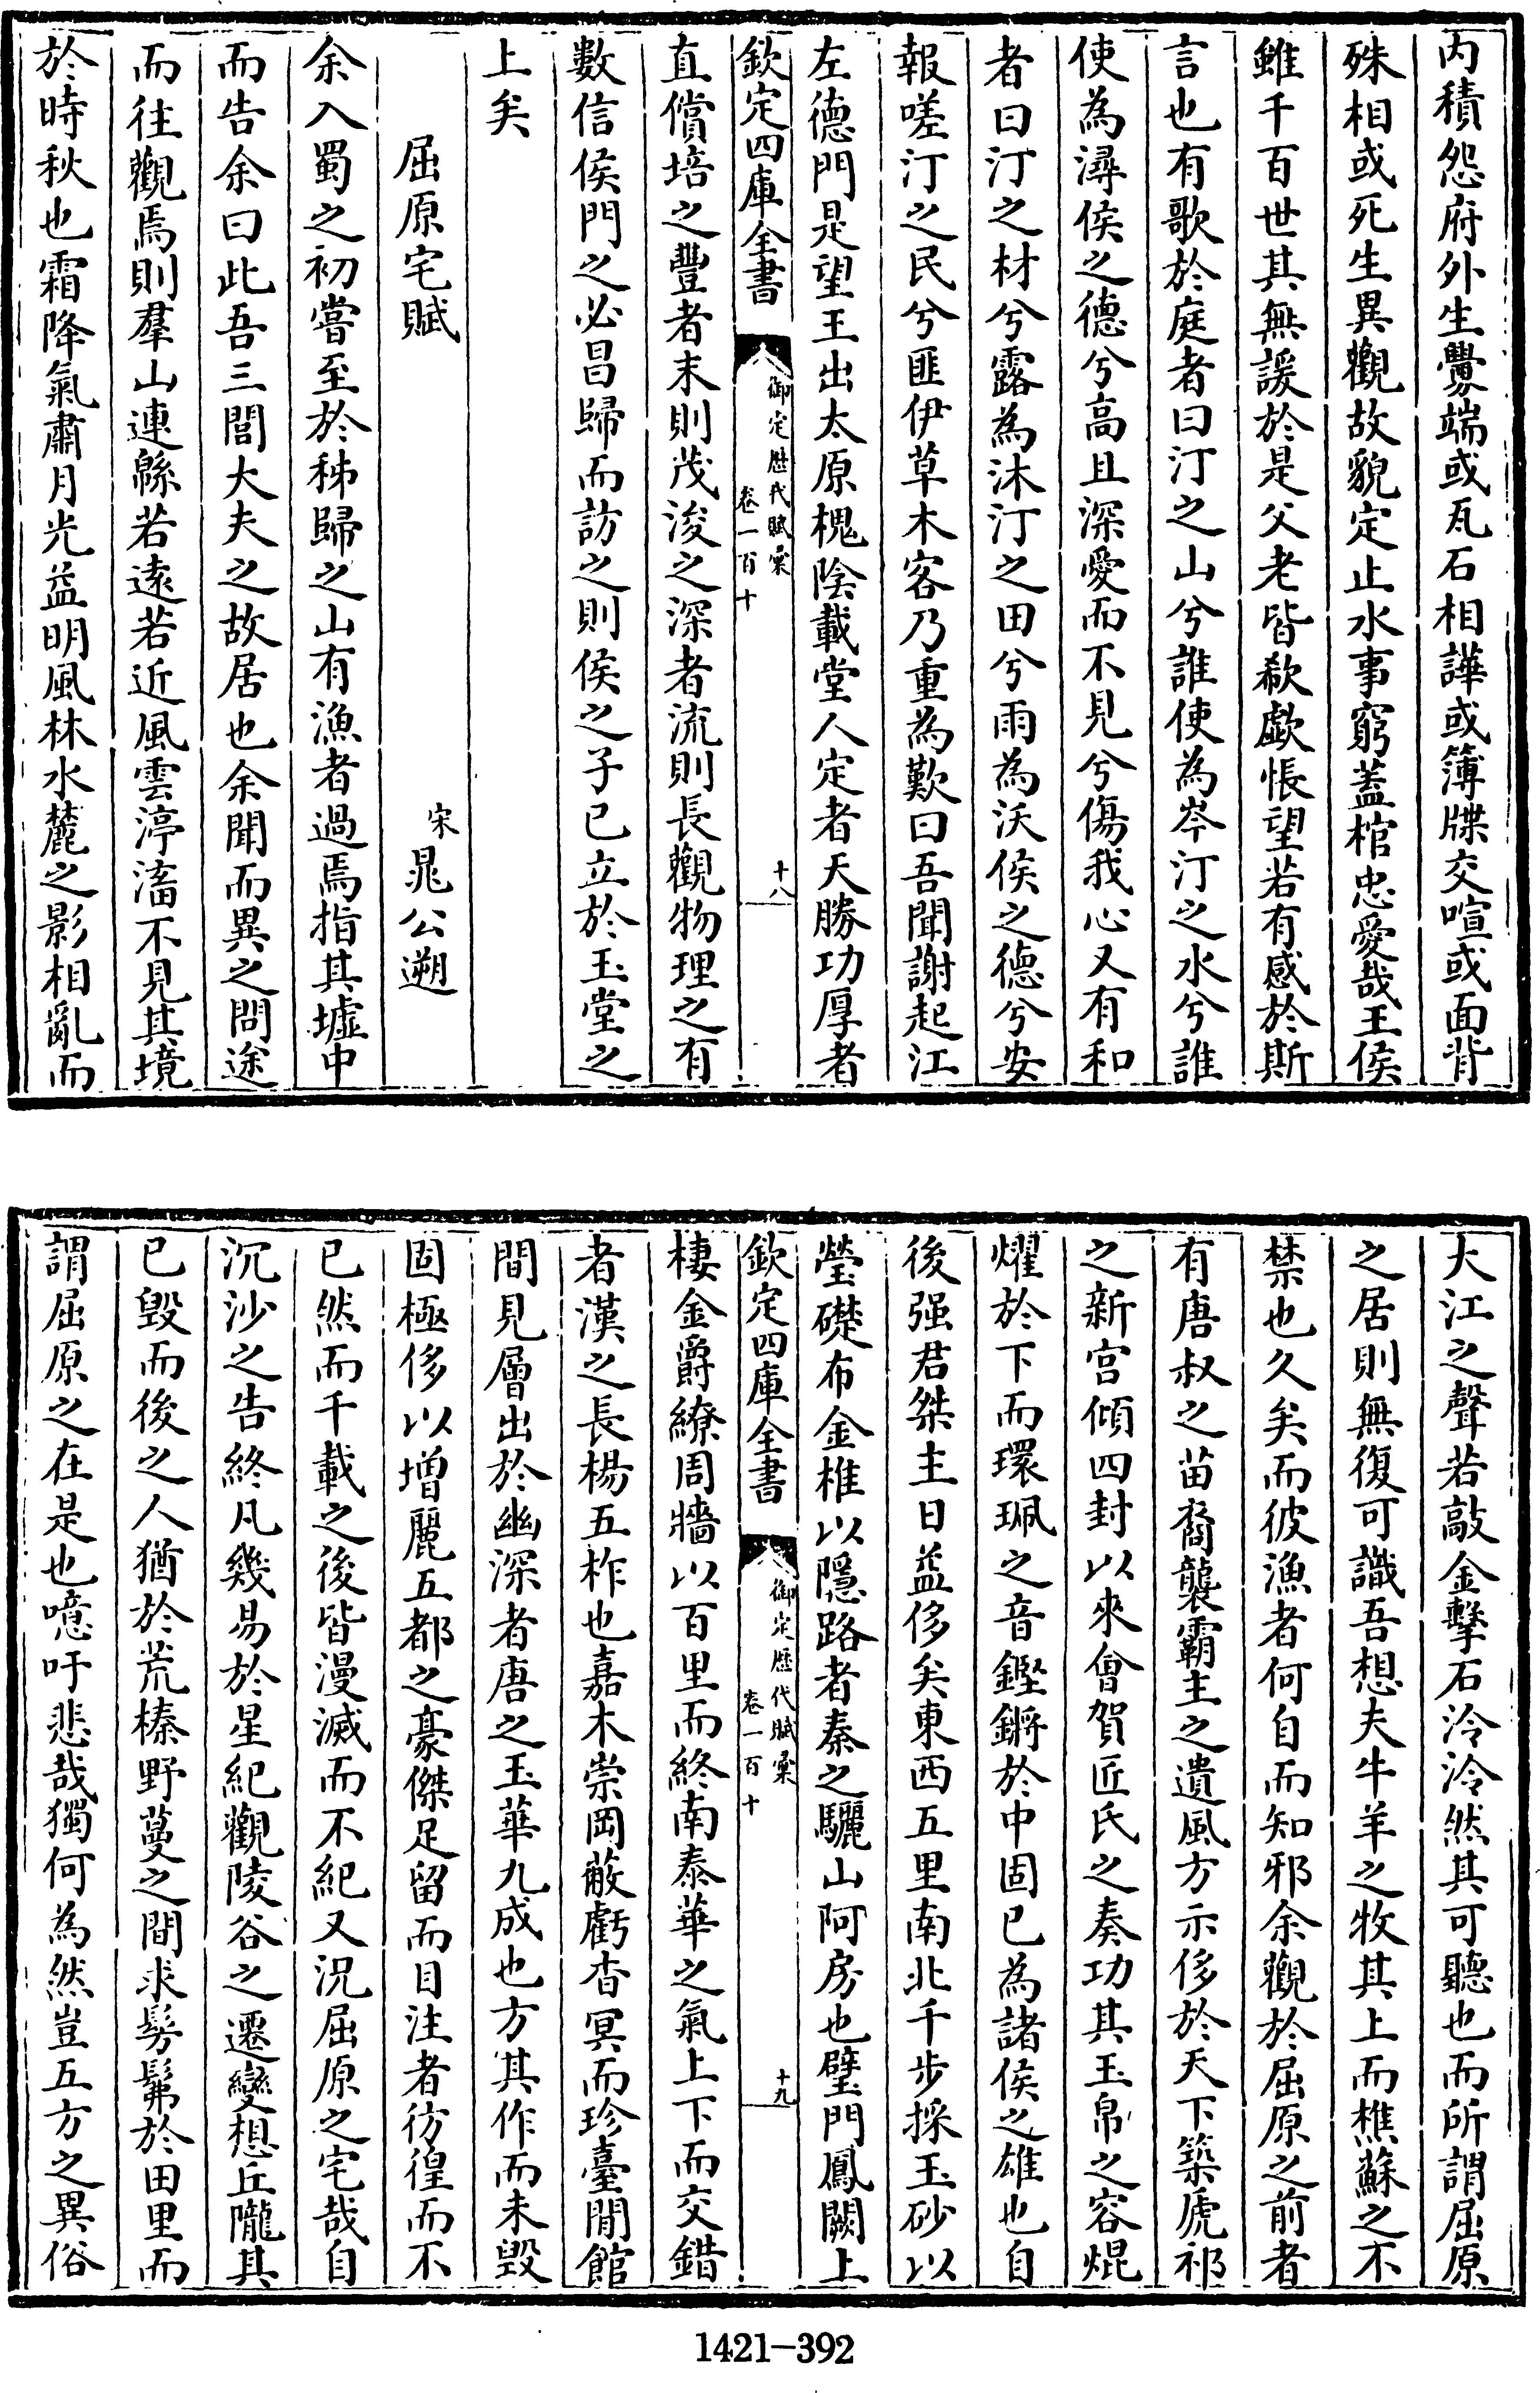 內積怨府外生釁端或瓦石相譁或簿牒交喧或面背
殊相或死生異觀故貌定止水事窮蓋棺忠愛哉王侯
雖千百世其無諼於是父老皆欷歔悵望若有感於斯
言也有歌於庭者曰汀之山兮誰使為岑汀之水兮誰
使為潯侯之德兮高且深愛而不見兮傷我心又有和
者曰汀之材兮露為沐汀之田兮雨為沃侯之德兮安
報嗟汀之民兮匪伊草木客乃重為歎曰吾聞謝起江
左德門是望王出太原槐陰載堂人定者天勝功厚者
欽定四庫全書
御定歷代賦彙
卷一百十
十八
直償培之豐者末則茂浚之深者流則長觀物理之有
數信侯門之必昌歸而訪之則侯之子已立於玉堂之
上矣
屈原宅賦
宋晁公遡
余入蜀之初嘗至於秭歸之山有漁者過焉指其墟中
而告余曰此吾三閭大夫之故居也余聞而異之問途
而往觀焉則羣山連緜若遠若近風雲渟滀不見其境
於時秋也霜降氣肅月光益明風林水麓之影相亂而
大江之聲若敲金擊石泠泠然其可聽也而所謂屈原
之居則無復可識吾想夫牛羊之牧其上而樵蘇之不
禁也久矣而彼漁者何自而知邪余觀於屈原之前者
有唐叔之苗裔襲霸主之遺風方示侈於天下築虒祁
之新宮傾四封以來會賀匠氏之奏功其玉帛之容焜
燿於下而環珮之音鏗鏘於中固已為諸侯之雄也自
後强君桀主日益侈矣東西五里南北千步採玉砂以
瑩礎布金椎以隱路者秦之驪山阿房也璧門鳳闕上
欽定四庫全書
御定歷代賦彙
卷一百十
十九
棲金爵繚周牆以百里而終南泰華之氣上下而交錯
者漢之長楊五柞也嘉木崇岡蔽虧杳冥而珍臺閒館
間見層出於幽深者唐之玉華九成也方其作而未毀
固極侈以增麗五都之豪傑足留而目注者彷徨而不
已然而千載之後皆漫滅而不紀又況屈原之宅哉自
沉沙之告終凡幾易於星紀觀陵谷之遷變想丘隴其
已毀而後之人猶於荒榛野蔓之間求髣髴於田里而
謂屈原之在是也噫吁悲哉獨何為然豈五方之異俗
1421-392